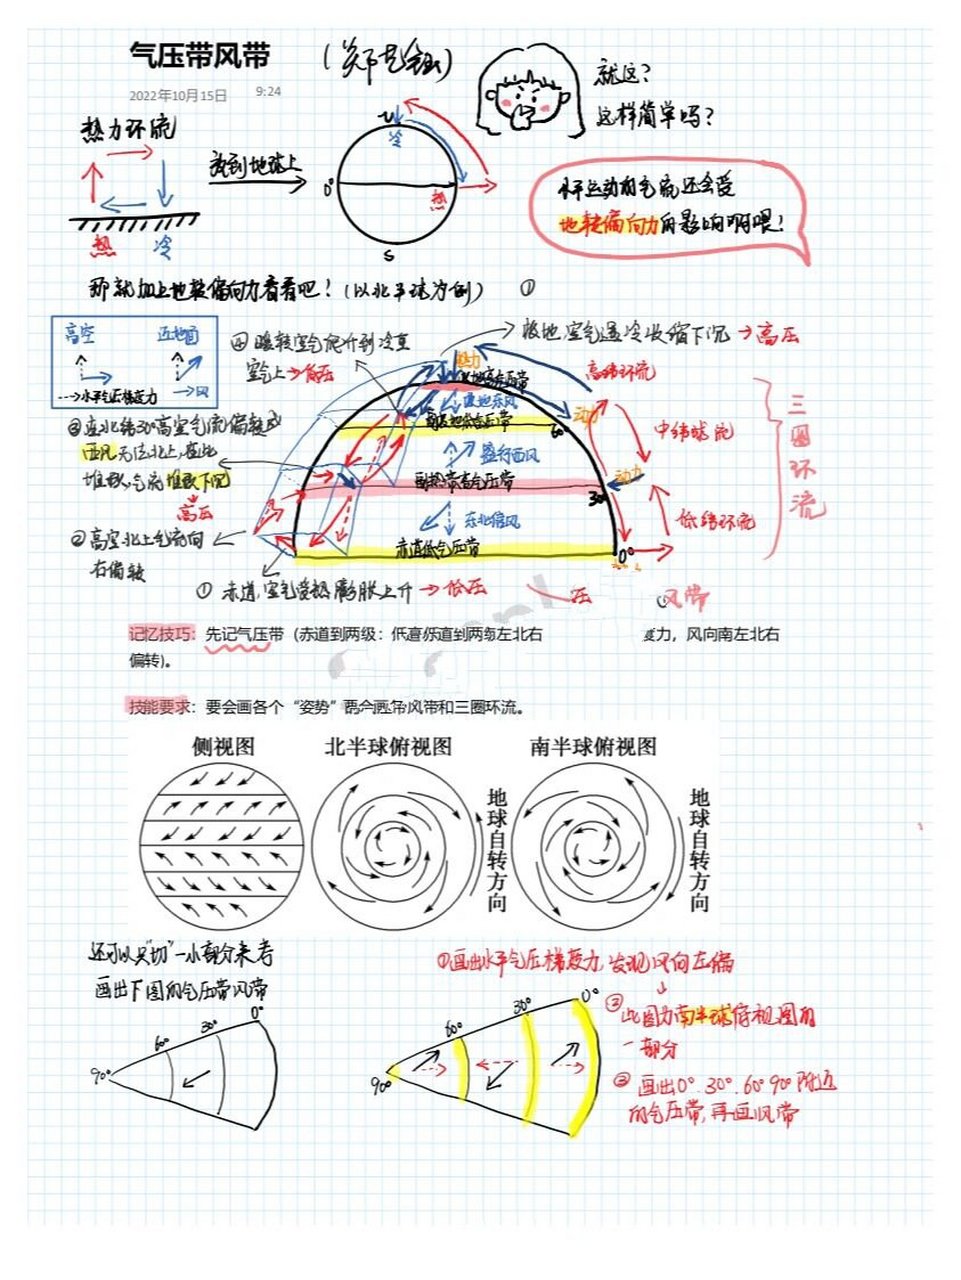 气压带风带
2022年10月15日 9:24
热力环流
热 冷
放到地球上
N
冷
0°
热
S
就这？
这样简单吗？
水平运动的气流还会受
地转偏向力的影响啊喂！
那就加上地转偏向力看看吧！(以北半球为例) ①
高空 近地面
水平气压梯度力 风
④ 暖较空气爬升到冷重
空气上→低压
极地,空气遇冷收缩下沉→高压
③在北纬30°高空气流偏转成
西风无法北上,在此
堆积,气流堆积下沉
高压
②高空北上气流向
右偏转
① 赤道,空气受热膨胀上升→低压
热力
极地高气压带
极地东风
副极地低气压带
60°
盛行西风
副热带高气压带
30°
东北信风
赤道低气压带
0°
动力
动力
高纬环流
中纬环流
低纬环流
三圈环流
压
风带
记忆技巧：先记气压带（赤道到两级：低
力，风向南左北右
偏转）。
技能要求：要会画各个“姿势”
风带和三圈环流。
侧视图 北半球俯视图 南半球俯视图
地球自转方向 地球自转方向
还可以只“切”一小部分来考
画出下图的气压带风带
90° 60° 30° 0°
①画出水平气压梯度力,发现风向左偏
②此图为南半球俯视图的
一部分
③画出0°.30°.60°90°附近
的气压带,再画风带
90° 60° 30° 0°